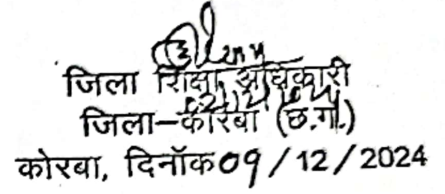 जिला शिक्षा अधिकारी
जिला–कोरबा (छ.ग.)
कोरबा, दिनॉक 09/12/2024